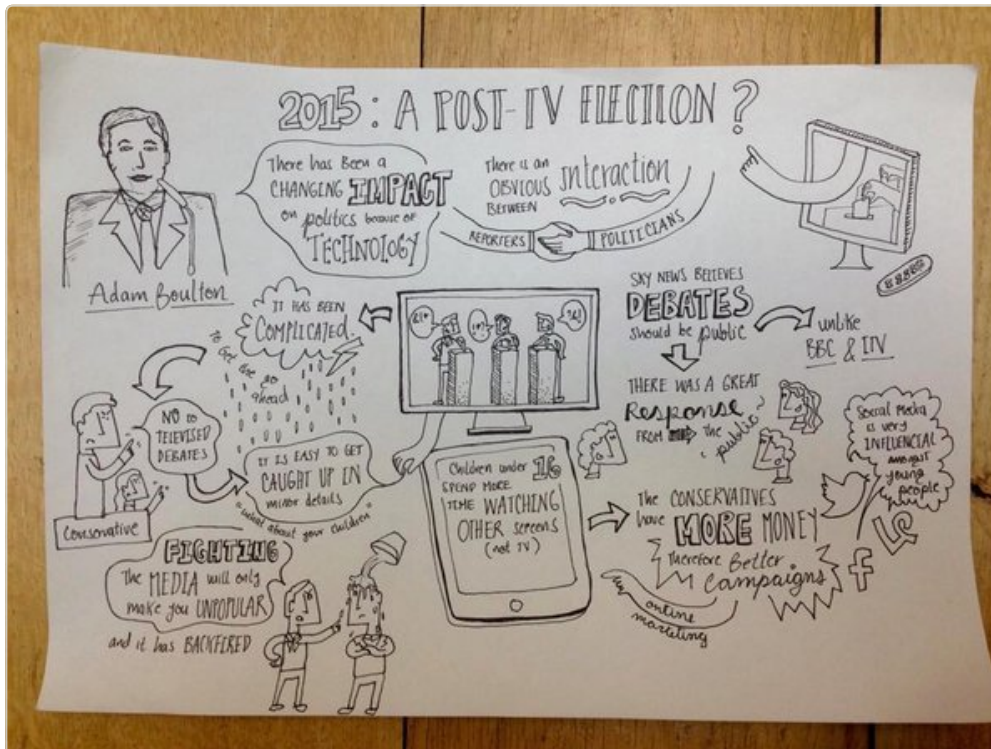 2015: A POST-TV ELECTION?
Adam Boulton
There has Been a
CHANGING IMPACT
on politics because of
TECHNOLOGY
There is an
OBVIOUS interaction
BETWEEN
REPORTERS
POLITICIANS
IT HAS BEEN
COMPLICATED.
to get the go
ahead
NO to
TELEVISED
DEBATES
Conservative
IT IS EASY TO GET
CAUGHT UP IN
minor details
"what about your children"
FIGHTING
The MEDIA will only
make you UNPOPULAR
and it has BACKFIRED
SKY NEWS BELIEVES
DEBATES
should be public
unlike
BBC & ITV
THERE WAS A GREAT
Response
FROM the
public
Children under 16
SPEND MORE
TIME WATCHING
OTHER screens
(not TV)
The CONSERVATIVES
have MORE MONEY
Therefore Better
Campaigns
online
marketing
Social Media
is very
INFLUENCIAL
amongst
young
people
f